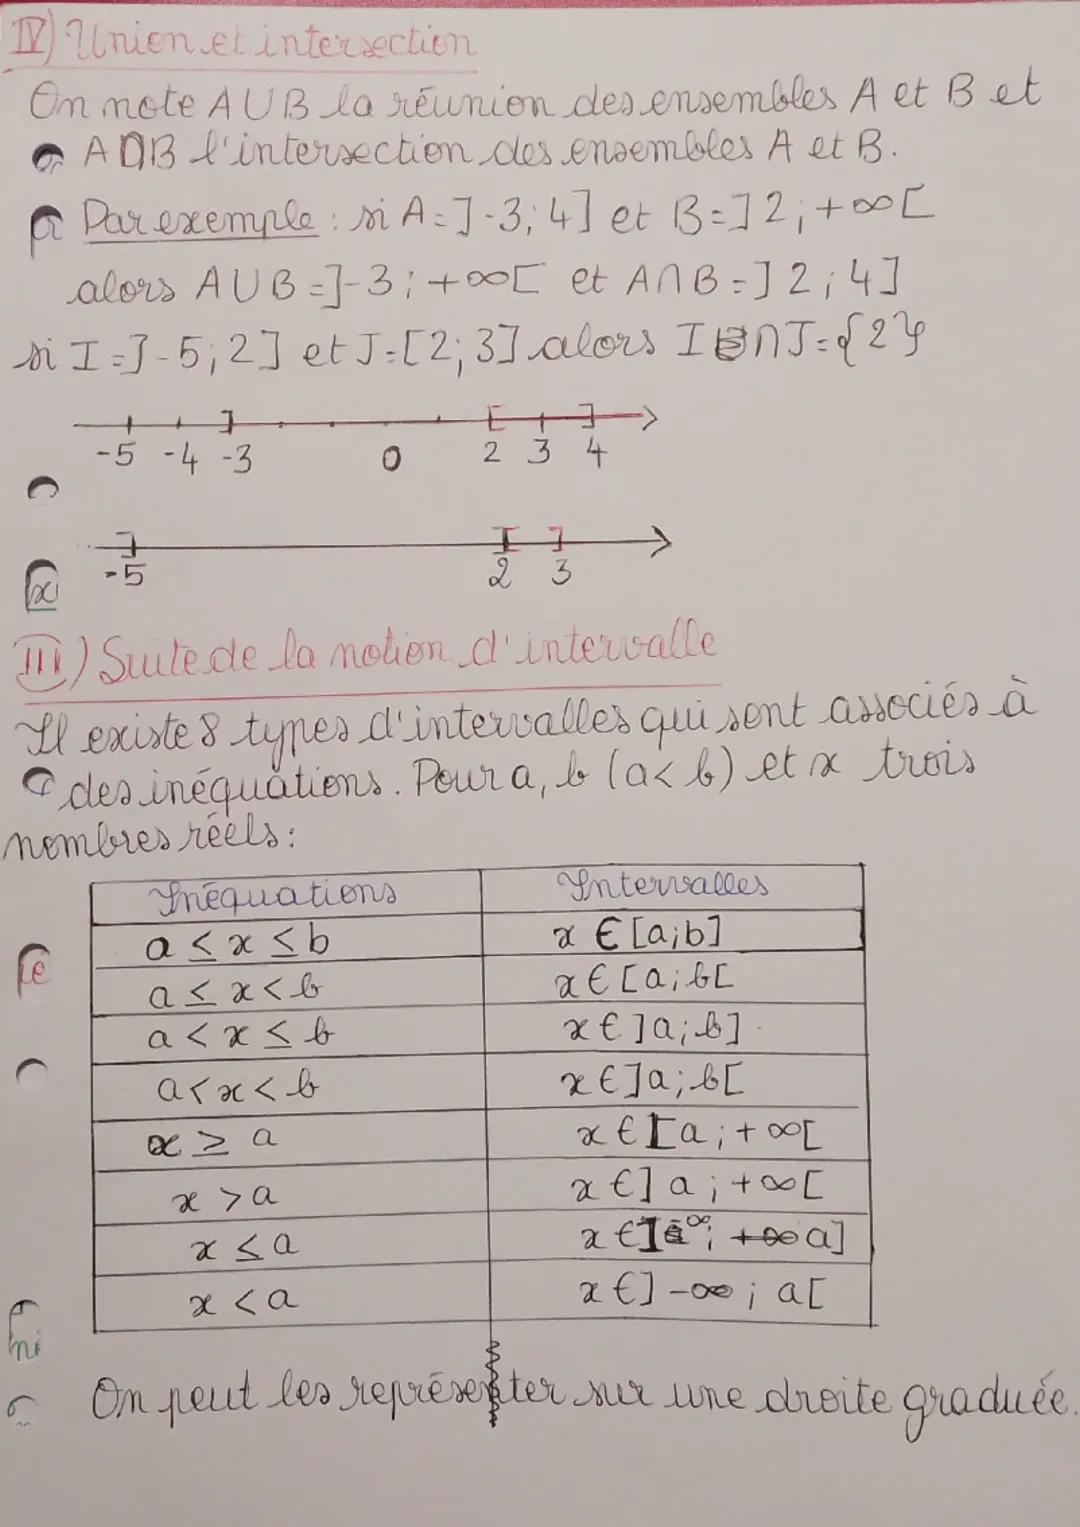 IV) Union et intersection
On note A∪B la réunion des ensembles A et B et
A∩B l'intersection des ensembles A et B.
Par exemple : si A=]-3;4] et B=]2;+∞[
alors A∪B=]-3;+∞[ et A∩B=]2;4]
si I=]-5;2] et J=[2;3] alors I∩J={2}
-5 -4 -3 0 2 3 4
-5 2 3
III) Suite de la notion d'intervalle
Il existe 8 types d'intervalles qui sont associés à
des inéquations. Pour a, b (a<b) et x trois
nombres réels :
Inéquations Intervalles
a ≤ x ≤ b x ∈ [a;b]
a ≤ x < b x ∈ [a;b[
a < x ≤ b x ∈ ]a;b]
a < x < b x ∈ ]a;b[
x ≥ a x ∈ [a;+∞[
x > a x ∈ ]a;+∞[
x ≤ a x ∈ ]-∞; a]
x < a x ∈ ]-∞; a[
On peut les représenter sur une droite graduée.